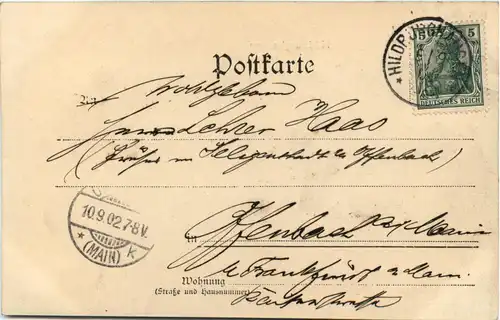 HILDBURGH
5
DEUTSCHES REICH
Postkarte
An
Wohlgeboren
Herrn Lehrer Haas
(früher in Seligenstadt b. Offenbach)
10.9.02.7-8V.
* (MAIN) k
in Offenbach a/Main
b. Frankfurt a. Main
Wohnung
(Straße und Hausnummer)